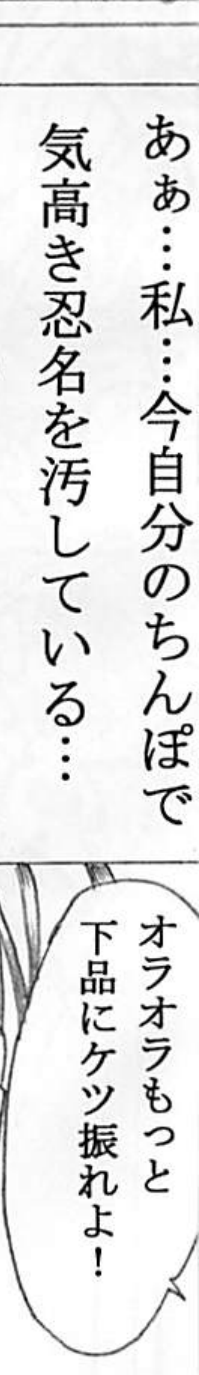 あぁ…私…今自分のちんぽで
気高き忍名を汚している…
オラオラもっと
下品にケツ振れよ！